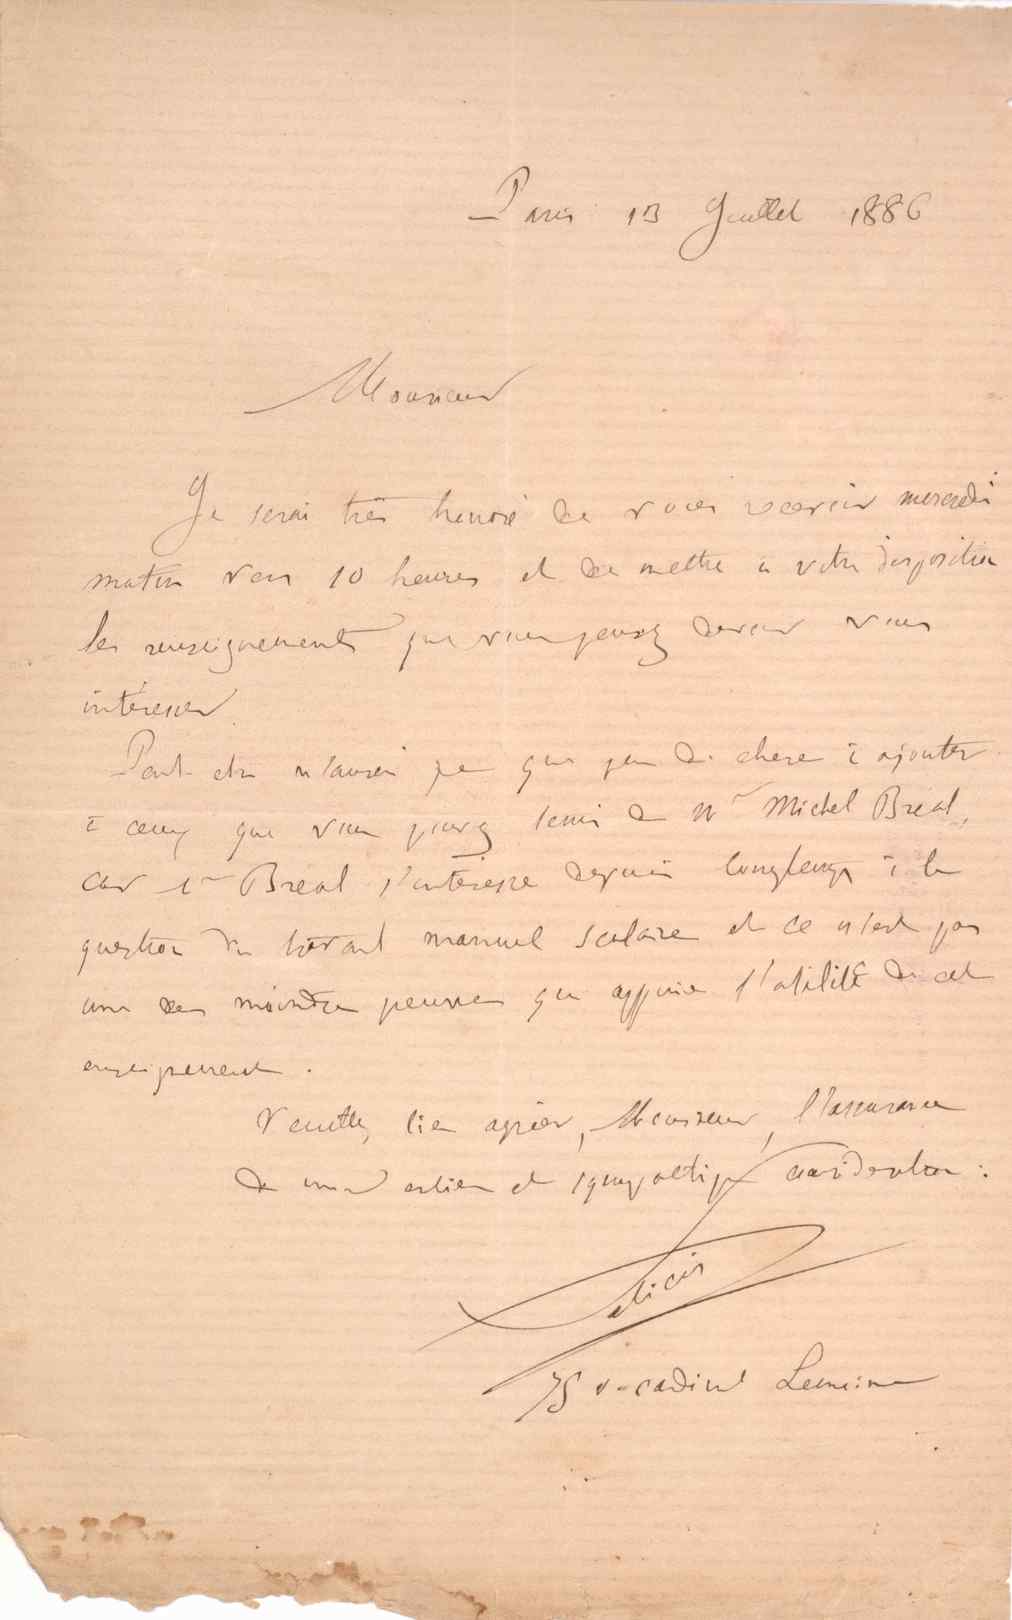 Paris 13 Juillet 1886
Monsieur
Je serai très honoré de vous recevoir mercredi
matin vers 10 heures et de mettre à votre disposition
les renseignements que vous pensez devoir vous
intéresser
Peut-être n'aurai je que peu de chose à ajouter
à ceux que vous pouvez tenir de Mr Michel Bréal,
car Mr Bréal s'intéresse depuis longtemps à la
question du travail manuel scolaire et ce n'est pas
une des moindres preuves que appuie l'utilité de cet
enseignement.
Veuillez bien agréer, Monsieur, l'assurance
de mon entière et sympathique considération.
Salicis
75 r. cardinal Lemoine